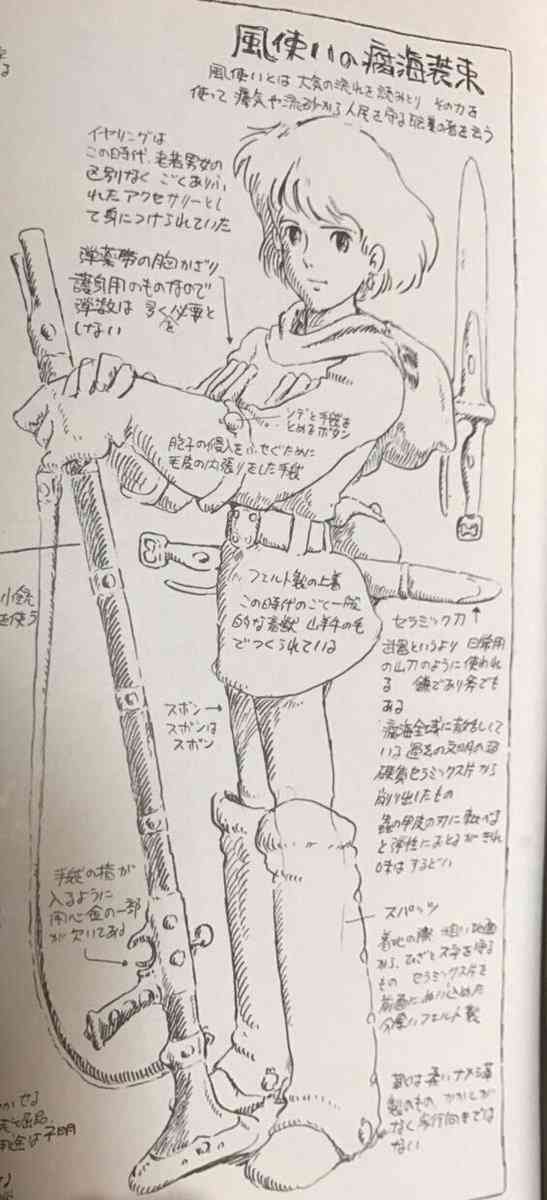 風使いの腐海装束
風使いとは 大気の流れを読みとり その力を
使って 瘴気や流砂から人民を守る 職業の者を云う
イヤリングは
この時代、老若男女の
区別なく ごくありふ
れたアクセサリーとし
て身につけられていた
弾薬帯の胸かざり
護身用のものなので
弾数は 多くを必要と
しない
ソデと手袋を
とめるボタン
胞子の侵入をふせぐために
毛皮の内張りをした手袋
フェルト製の上着
この時代のごく一般
的な家獣 山羊牛の毛
でつくられている
小銃
を使う
セラミック刀
武器というより 日常用
の山刀のように使われ
る 鎌であり斧でも
ある
腐海全域に散乱して
いる過去の文明の超
硬質セラミックス片から
削り出したもの
蟲の甲皮の刃に較べる
と弾性におとるがきれ
味はするどい
ズボン
ズボンは
ズボン
手袋の指が
入るように
用心金の一部
が欠いてある
スパッツ
着地の際 粗い地面
から、ひざと スネを守る
もの セラミックス片を
前面にぬい込めた
分厚いフェルト製
靴は柔いナメシ革
製のもの かかとが
なく歩行向きでは
ない
かせる
用途は不明